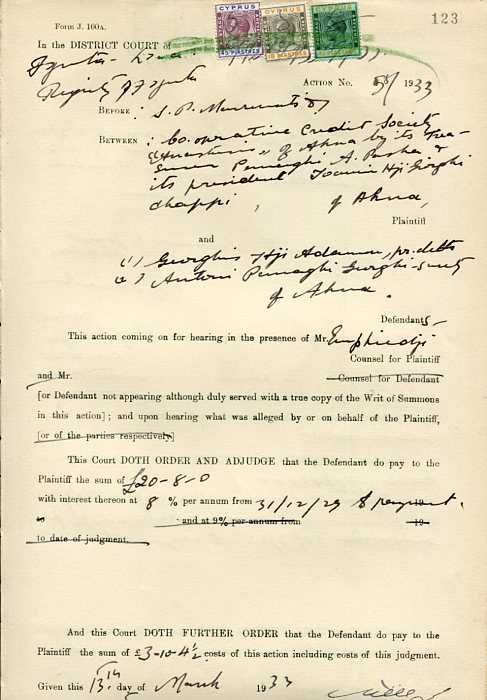 123
Form J. 100A.
CYPRUS CYPRUS CYPRUS
45 PIASTRES 18 PIASTRES
In the DISTRICT COURT of
ACTION No. 58/1933
BEFORE : S. P.
BETWEEN : Co-operative Credit Society
" of Ahna by its Trea-
surer Panaghi A. Pasha &
its president Joannis Hji Georghi
, of Ahna,
Plaintiff
and
(1) Georghios Hji Adamou, pr. debtor
(2) Antoni Panaghi Georghi - surety
of Ahna.
Defendants -
This action coming on for hearing in the presence of Mr.
Counsel for Plaintiff
and Mr. Counsel for Defendant
[or Defendant not appearing although duly served with a true copy of the Writ of Summons
in this action]; and upon hearing what was alleged by or on behalf of the Plaintiff,
[or of the parties respectively]
This Court DOTH ORDER AND ADJUDGE that the Defendant do pay to the
Plaintiff the sum of £20-8-0
with interest thereon at 8 % per annum from 31/12/29 to payment. 19
and at 9% per annum from 19
to date of judgment.
And this Court DOTH FURTHER ORDER that the Defendant do pay to the
Plaintiff the sum of £3-10-4½ costs of this action including costs of this judgment.
Given this 13th day of March 1933